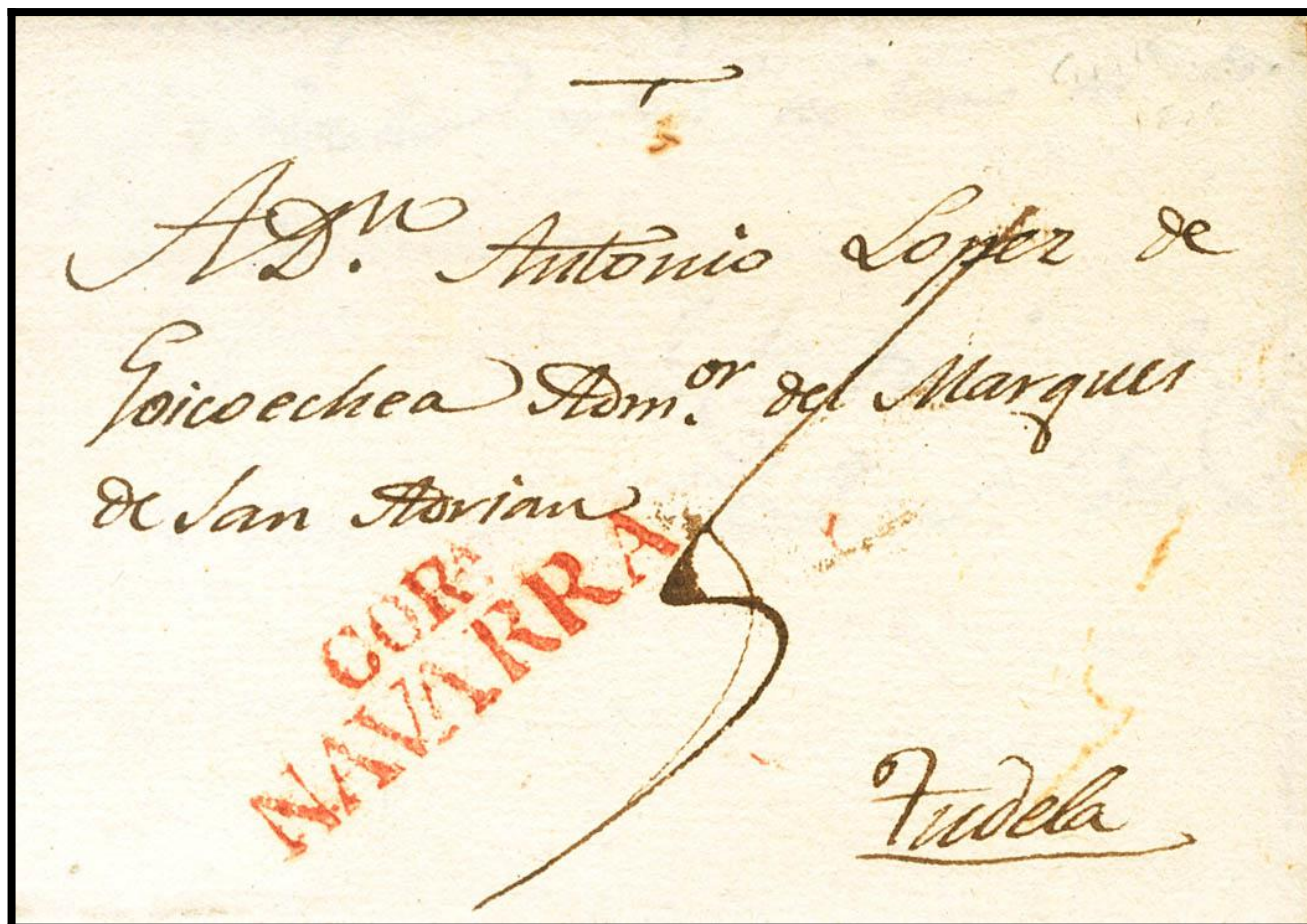 A D.n Antonio Lopez de
Goicoechea Adm.or del Marques
de San Adrian
COR.A
NAVARRA
Tudela